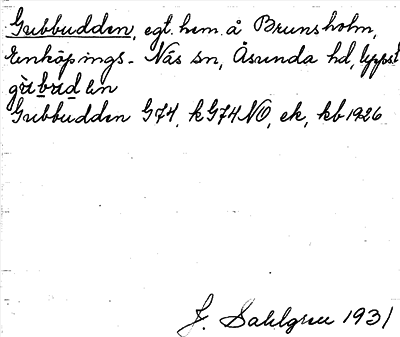 Gubbudden, egt. hem. å Brunsholm,
Enköpings-Näs sn, Åsunda hd,
Gubbudden G74, kG74NO, ek, kb 1926
J. Sahlgren 1931